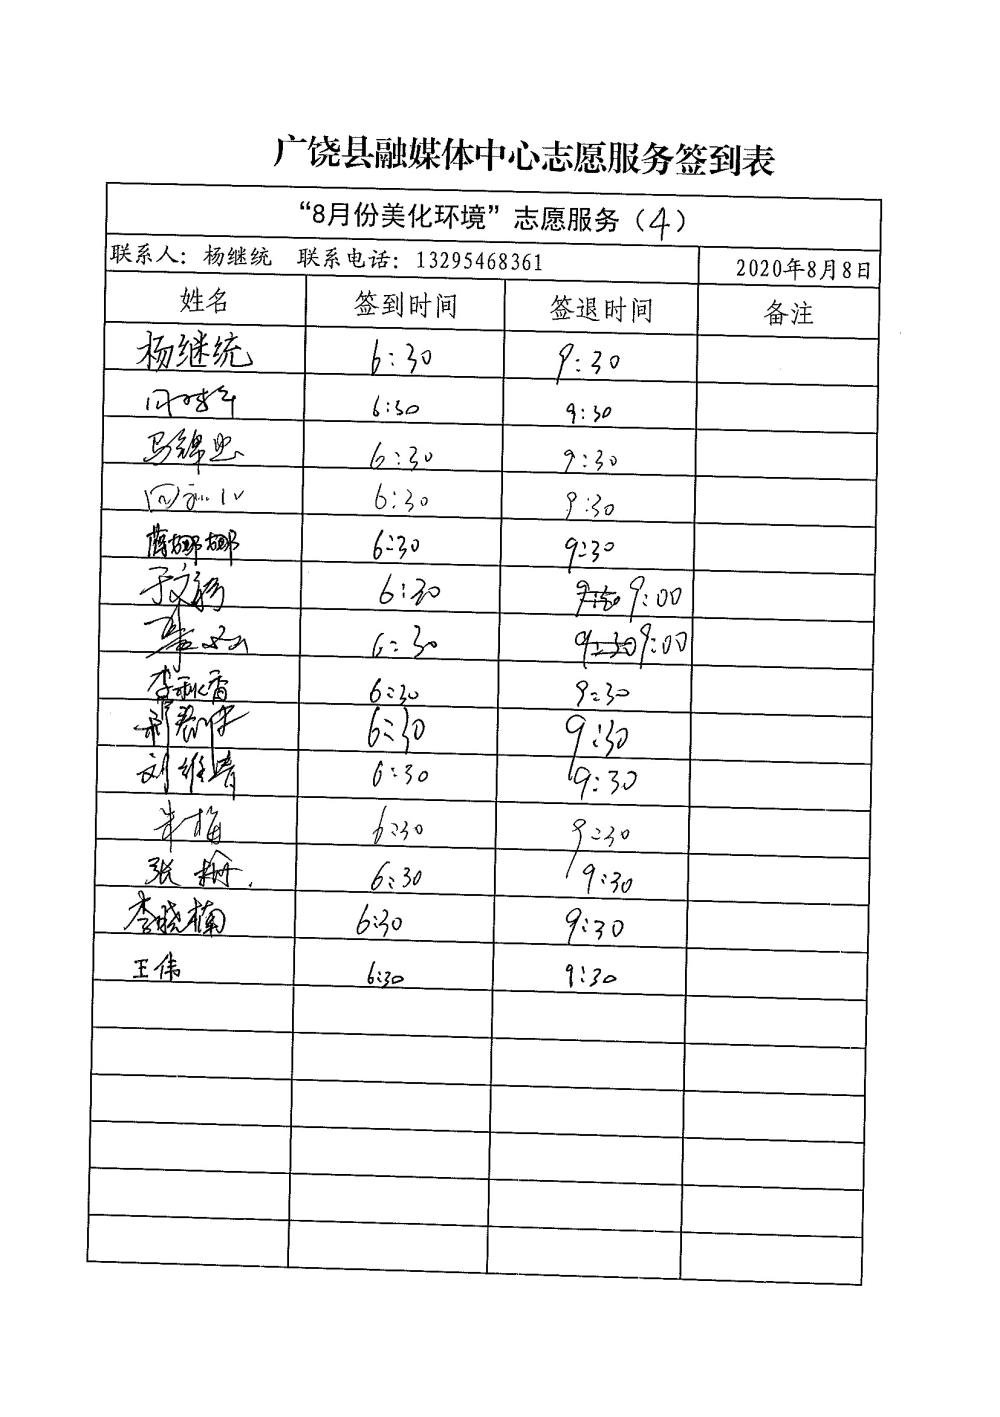 广饶县融媒体中心志愿服务签到表
“8月份美化环境”志愿服务（4）
联系人：杨继统 联系电话：13295468361 2020年8月8日
姓名 签到时间 签退时间 备注
杨继统 6:30 9:30
6:30 9:30
马锦忠 6:30 9:30
6:30 9:30
蒋娜娜 6:30 9:30
于文扬 6:30 9:00
6:30 9:30 9:00
李秋香 6:30 9:30
6:30 9:30
刘维青 6:30 9:30
朱梅 6:30 9:30
张楠 6:30 9:30
李晓楠 6:30 9:30
王伟 6:30 9:30